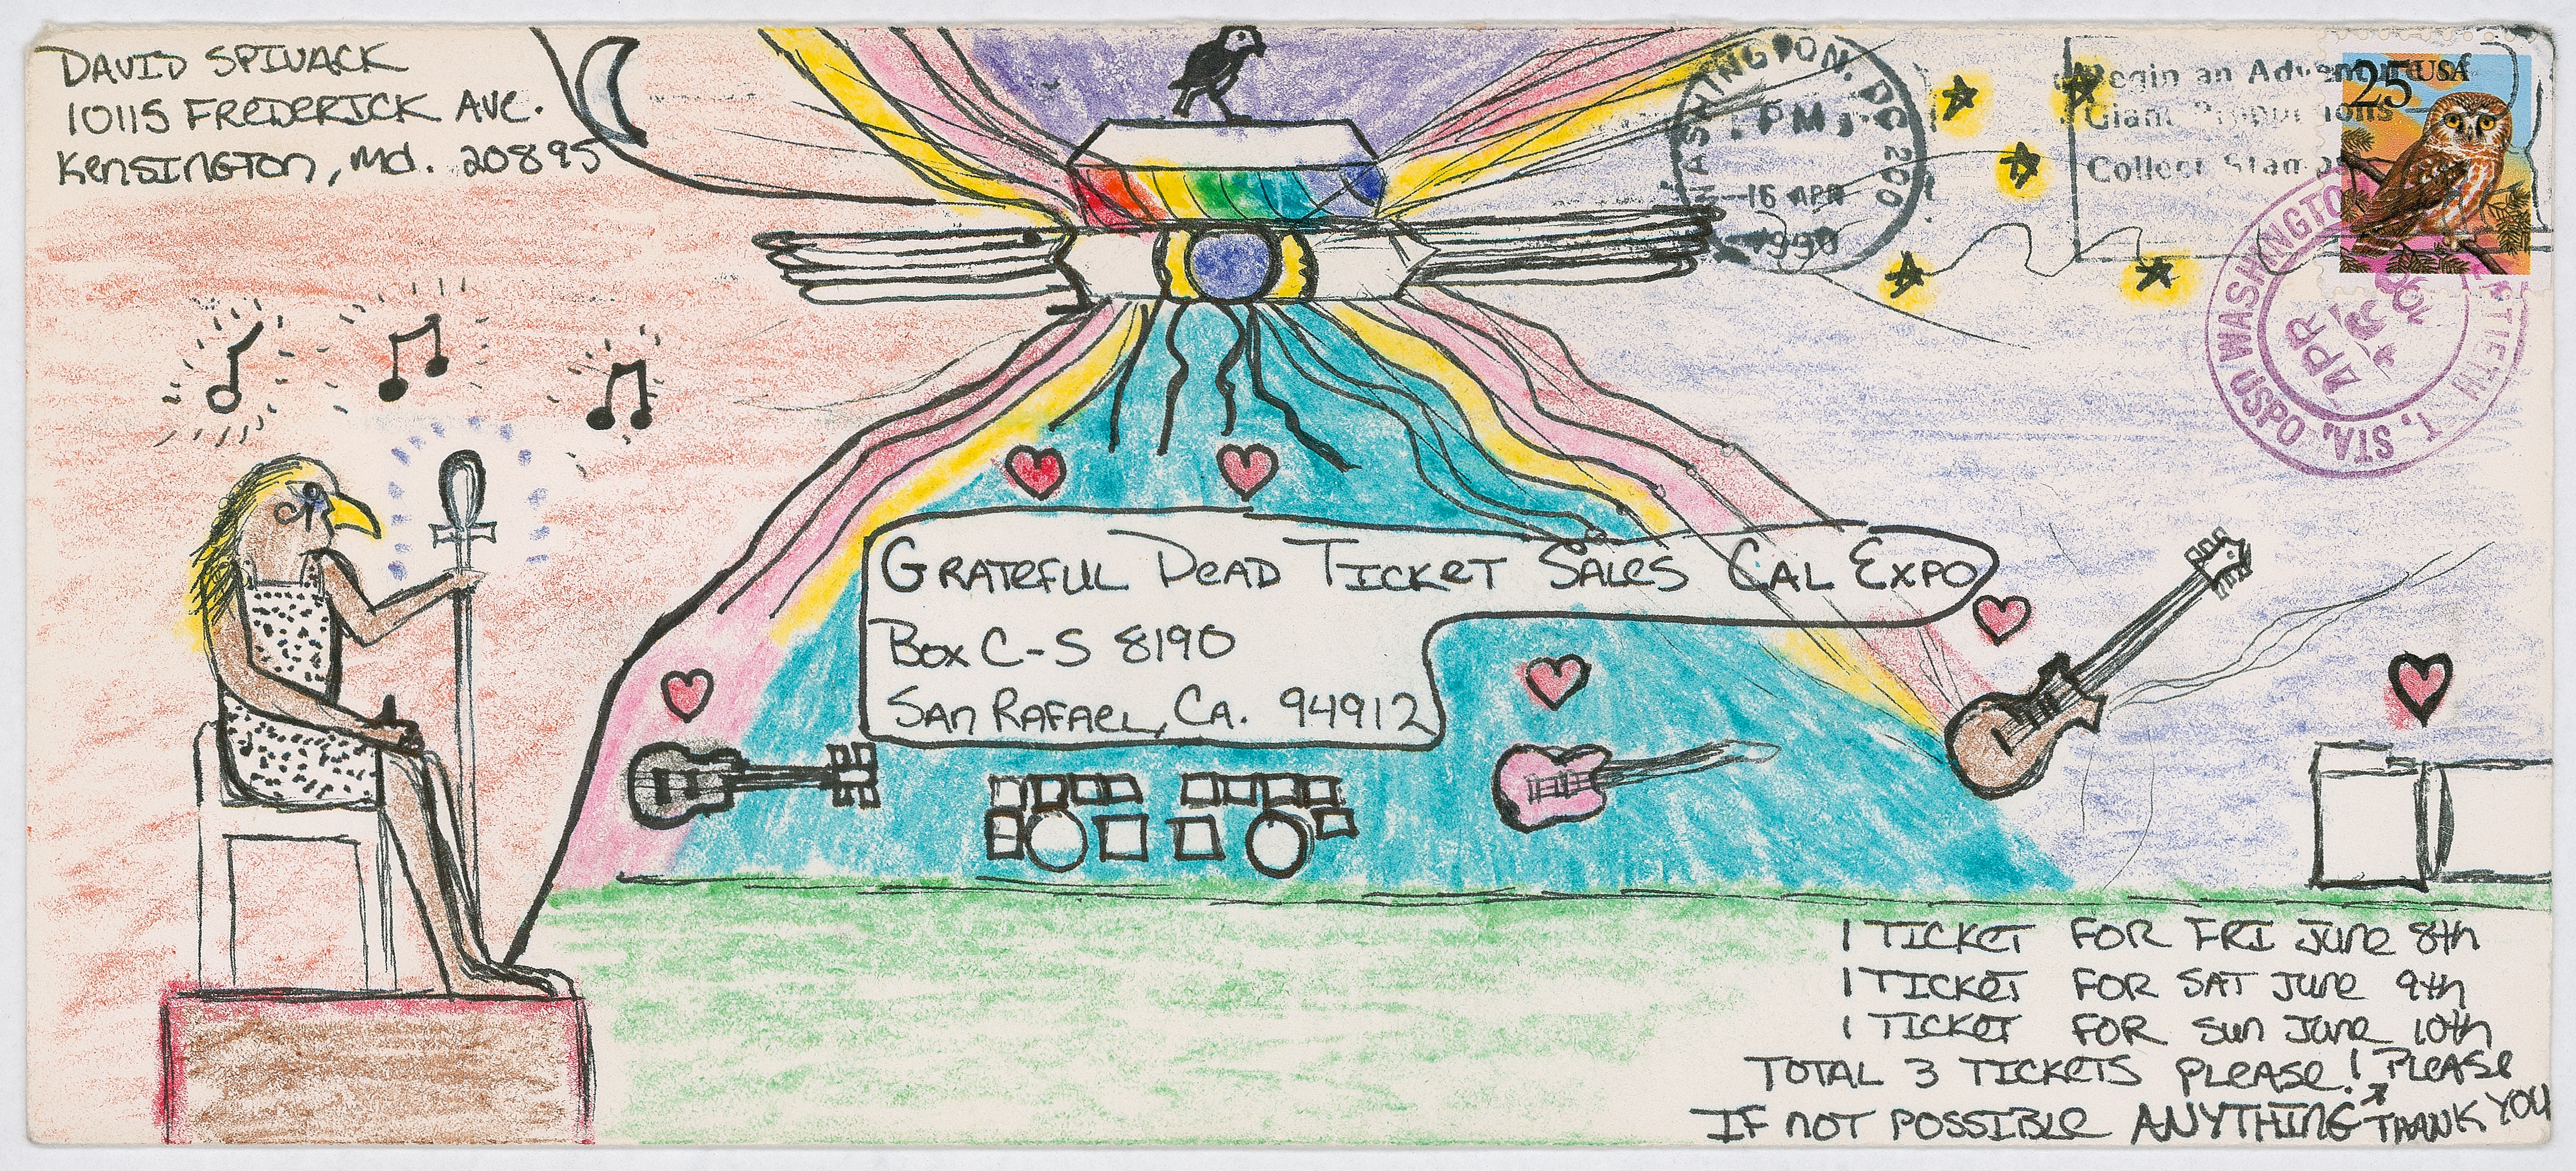 DAVID SPIVACK
10115 FREDERICK AVE.
KENSINGTON, Md. 20895
WASHINGTON, DC 200
PM
16 APR
1990
Begin an Adventure of
Giant Proportions
Collect Stamps
25 USA
USPO WASHINGTON
T. STA.
APR
GRATEFUL DEAD TICKET SALES CAL EXPO
BOX C-S 8190
SAN RAFAEL, CA. 94912
1 TICKET FOR FRI JUNE 8th
1 TICKET FOR SAT JUNE 9th
1 TICKET FOR SUN JUNE 10th
TOTAL 3 TICKETS PLEASE! PLEASE
IF NOT POSSIBLE ANYTHING THANK YOU